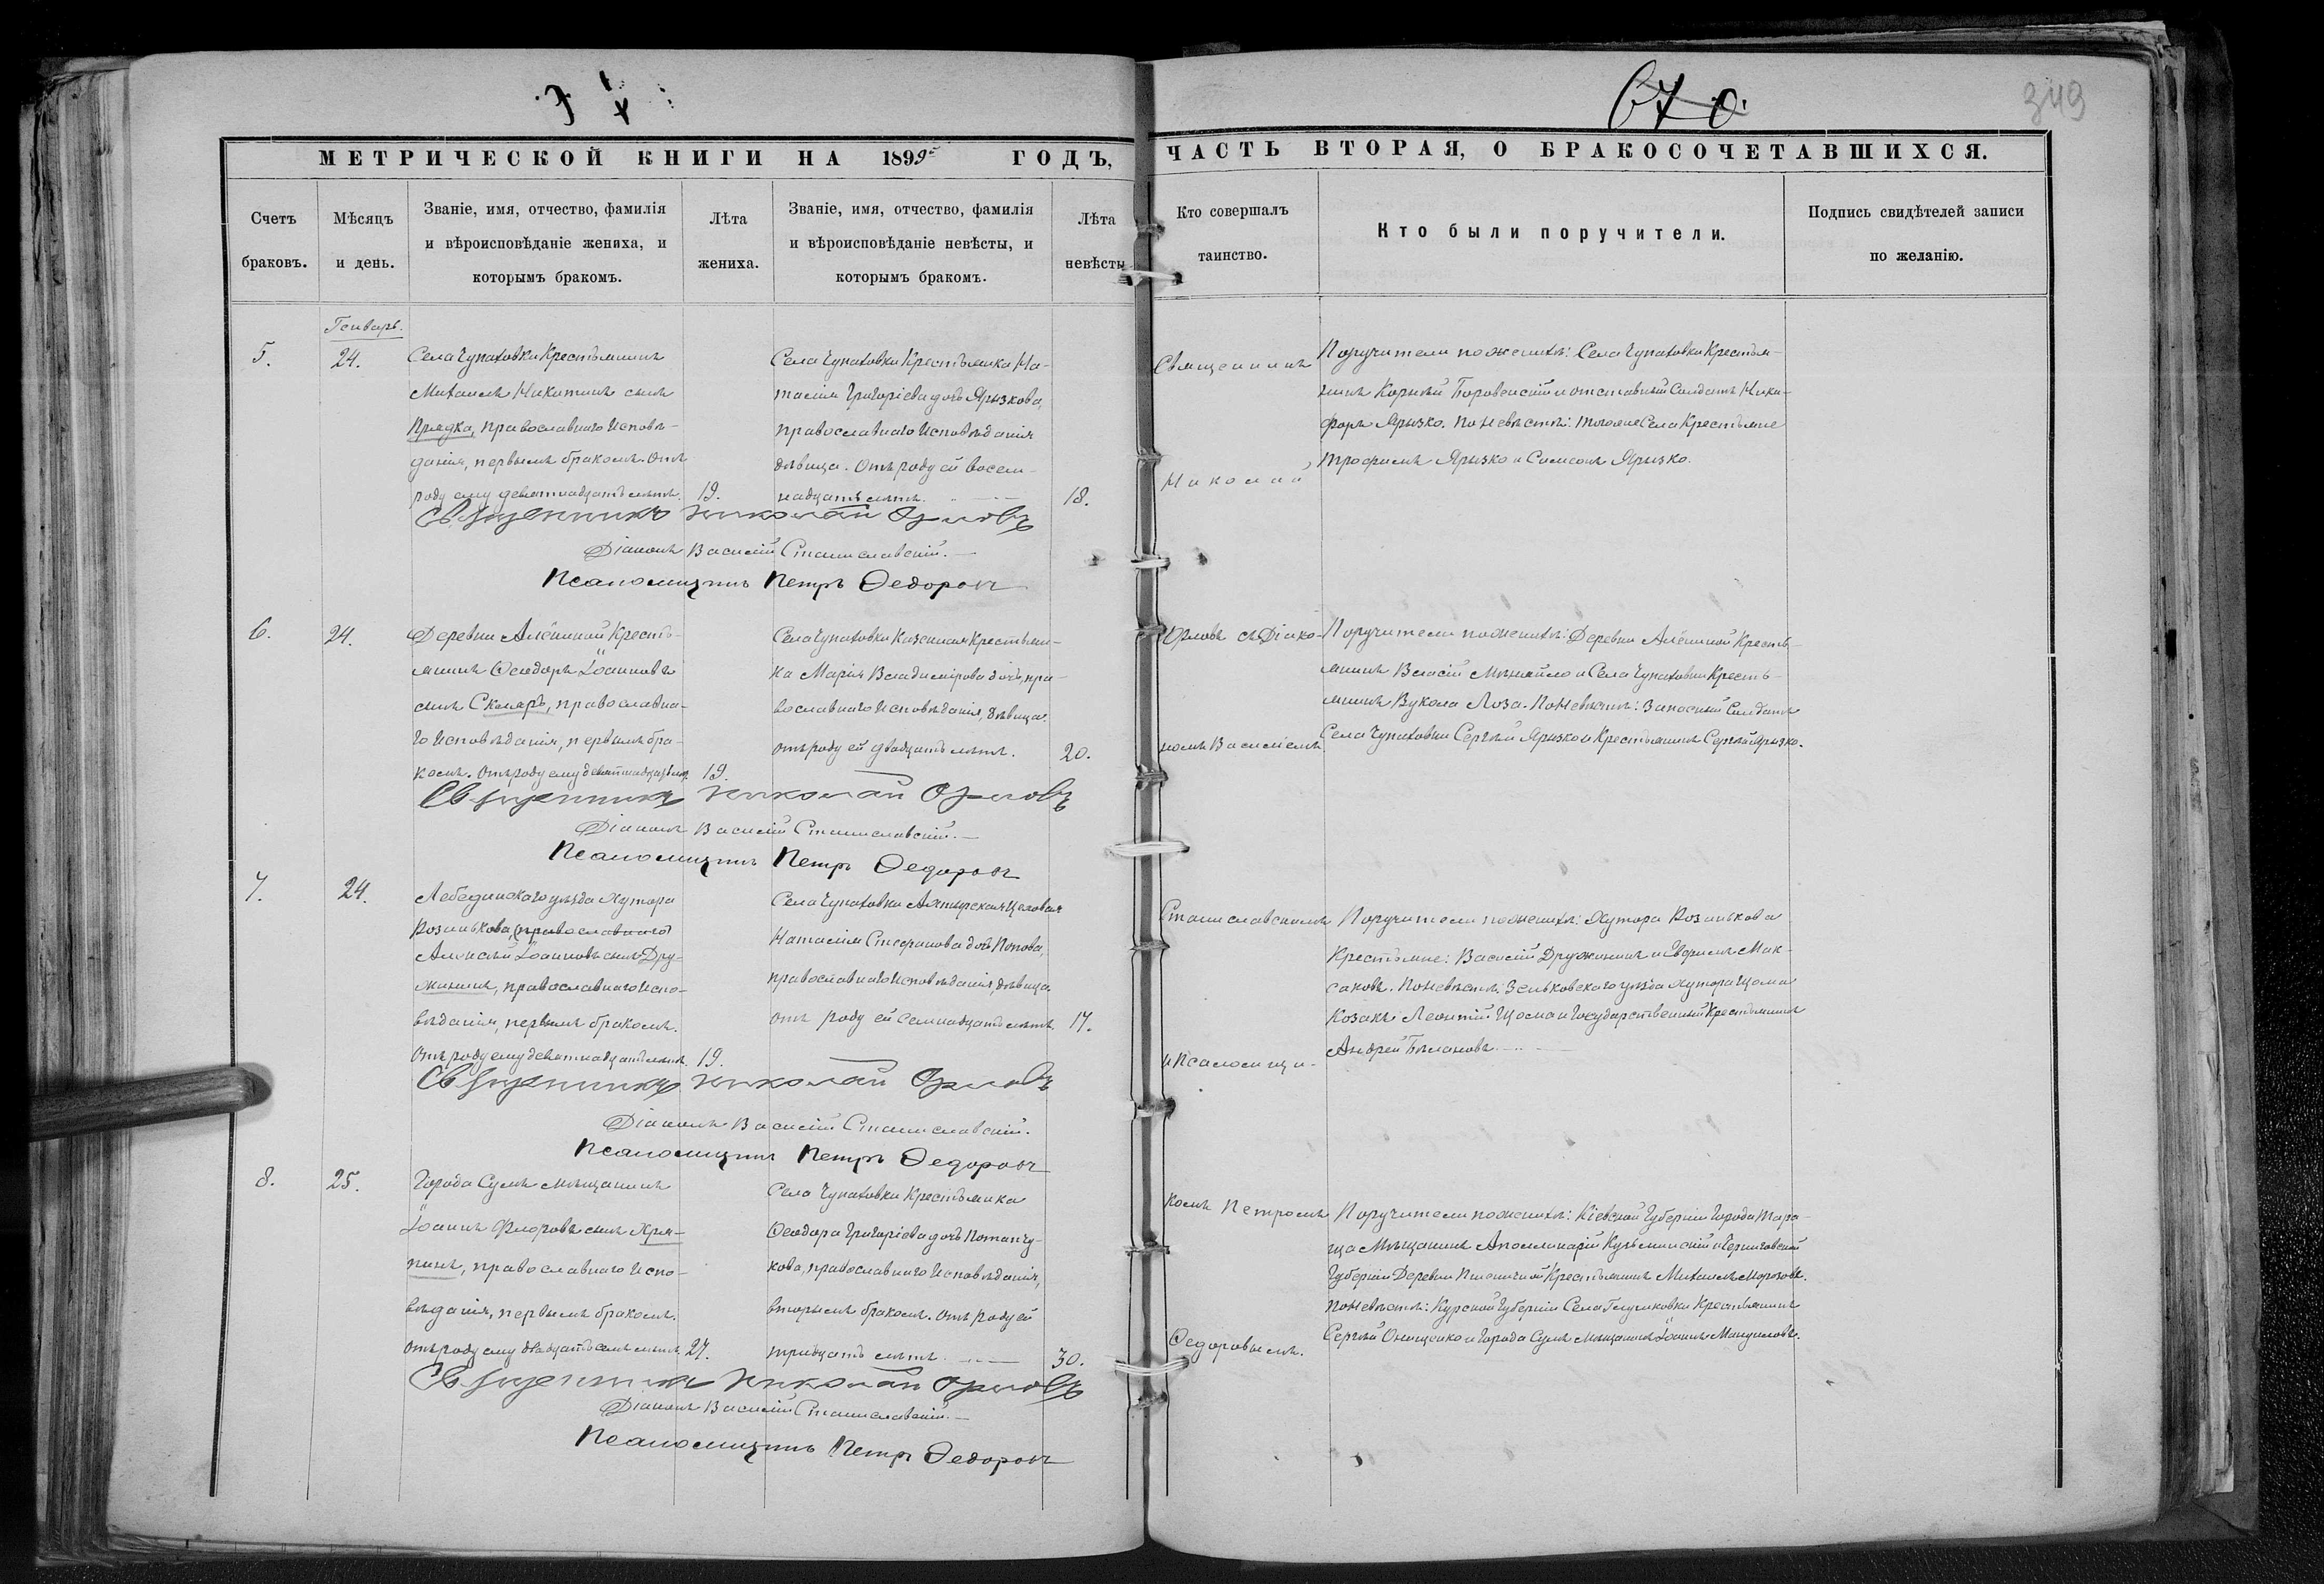 670.
349
МЕТРИЧЕСКОЙ КНИГИ НА 1899 ГОДЪ,
ЧАСТЬ ВТОРАЯ, О БРАКОСОЧЕТАВШИХСЯ.
Счетъ браковъ.
Мѣсяцъ и день.
Званіе, имя, отчество, фамилія
и вѣроисповѣданіе жениха, и
которымъ бракомъ.
Лѣта жениха.
Званіе, имя, отчество, фамилія
и вѣроисповѣданіе невѣсты, и
которымъ бракомъ.
Лѣта невѣсты
Кто совершалъ
таинство.
Кто были поручители.
Подпись свидѣтелей записи
по желанію.
Генварь.
5.
24.
Села Чупаховки Крестьянинъ
Михаилъ Никитинъ сынъ
Прядка, православнаго Исповѣ-
данія, первымъ бракомъ. Отъ
роду ему девятнадцать лѣтъ.
19.
Села Чупаховки Крестьянка На-
талія Григоріева дочь Ярызкова,
православнаго Исповѣданія
дѣвица. Отъ роду ей восем-
надцать лѣтъ.
18.
Священникъ
Николай
Поручители по женихѣ: Села Чупаховки Крестья-
нинъ Корнѣй Боровенскій и отставный Солдатъ Ники-
форъ Ярызко. По Невѣстѣ: тогоже Села Крестьяне
Трофимъ Ярызко и Симеонъ Ярызко.
Священникъ Николай Орловъ
Діаконъ Василій Станиславскій.
Псаломщикъ Петръ Федоровъ
6.
24.
Деревни Алёшиной Кресть-
янинъ Ѳеодоръ Іоанновъ
сынъ Скляръ, православна-
го Исповѣданія, первымъ бра-
комъ. Отъ роду ему девятнадцать лѣтъ.
19.
Села Чупаховки Казенная Крестьян-
ка Марія Владимірова дочь, пра-
вославнаго Исповѣданія, дѣвица
отъ роду ей двадцать лѣтъ.
20.
Орловъ съ Діако-
номъ Василіемъ
Поручители по женихѣ: Деревни Алёшиной Кресть-
янинъ Власій и Села Чупаховки Кресть-
янинъ Вукола Лоза. По Невѣстѣ: Запасный Солдатъ
Села Чупаховки Сергѣй Ярызко и Крестьянинъ Сергѣй Ярызко.
Священникъ Николай Орловъ
Діаконъ Василій Станиславскій.
Псаломщикъ Петръ Федоровъ
7.
24.
Лебединскаго уѣзда Хутора
Козинькова, (православнаго)
Алексѣй Іоанновъ сынъ Дру-
жининъ, православнаго Испо-
вѣданія, первымъ бракомъ.
Отъ роду ему девятнадцать лѣтъ.
19.
Села Чупаховки Ахтырская Цеховая
Наталія Стефанова дочь Попова,
православнаго Исповѣданія, дѣвица
отъ роду ей семнадцать лѣтъ.
17.
Станиславскимъ
и Псаломщи-
Поручители по женихѣ: Хутора Козинькова
Крестьяне: Василій Дружининъ и Ефимъ Мак-
саковъ. По Невѣстѣ: Зеньковскаго уѣзда хутора Цома
Козакъ Леонтій Цома и Государственный Крестьянинъ
Андрей Билановъ.
Священникъ Николай Орловъ
Діаконъ Василій Станиславскій.
Псаломщикъ Петръ Федоровъ
8.
25.
Города Сумъ мѣщанинъ
Іоаннъ Флоровъ сынъ Хря-
пинъ, православнаго Испо-
вѣданія, первымъ бракомъ.
Отъ роду ему двадцать семь лѣтъ.
27.
Села Чупаховки Крестьянка
Ѳеодора Григоріева дочь Потапчу-
кова, православнаго Исповѣданія,
вторымъ бракомъ. Отъ роду ей
тридцать лѣтъ.
30.
комъ Петромъ
Ѳедоровымъ.
Поручители по женихѣ: Кіевской Губерніи Города Тара-
ща Мѣщанинъ Аполлинарій Кузьминскій и Черниговской
Губерніи Деревни Пшеничной Крестьянинъ Михаилъ Морозовъ.
По Невѣстѣ: Курской Губерніи Села Глушковки Крестьянинъ
Сергѣй Онищенко и Города Сумъ мѣщанинъ Іоаннъ Мануиловъ.
Священникъ Николай Орловъ
Діаконъ Василій Станиславскій.
Псаломщикъ Петръ Федоровъ